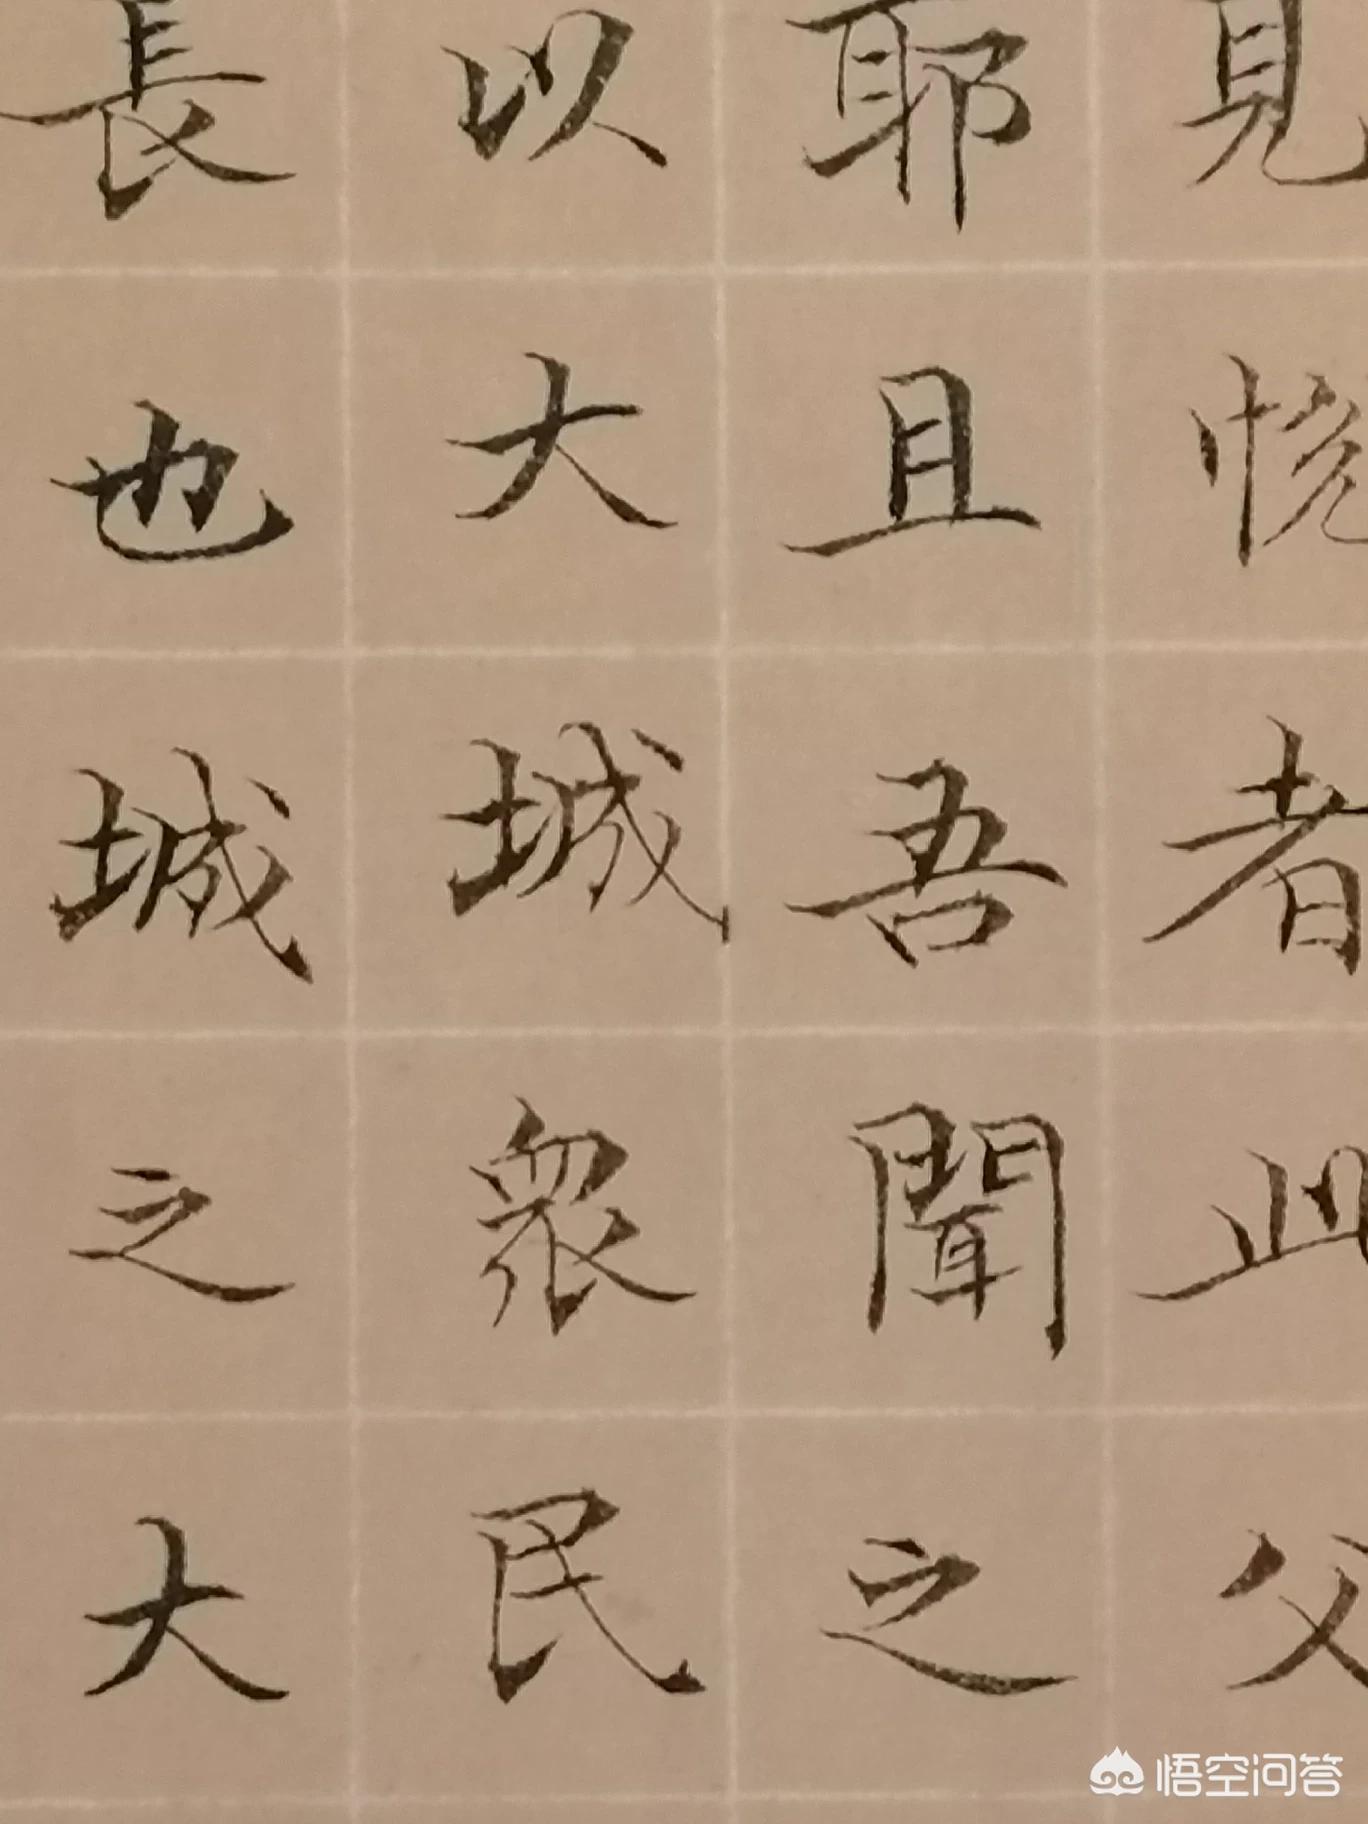 見悅者此父
耶且吾聞之
以大城衆民
長也城之大
悟空问答